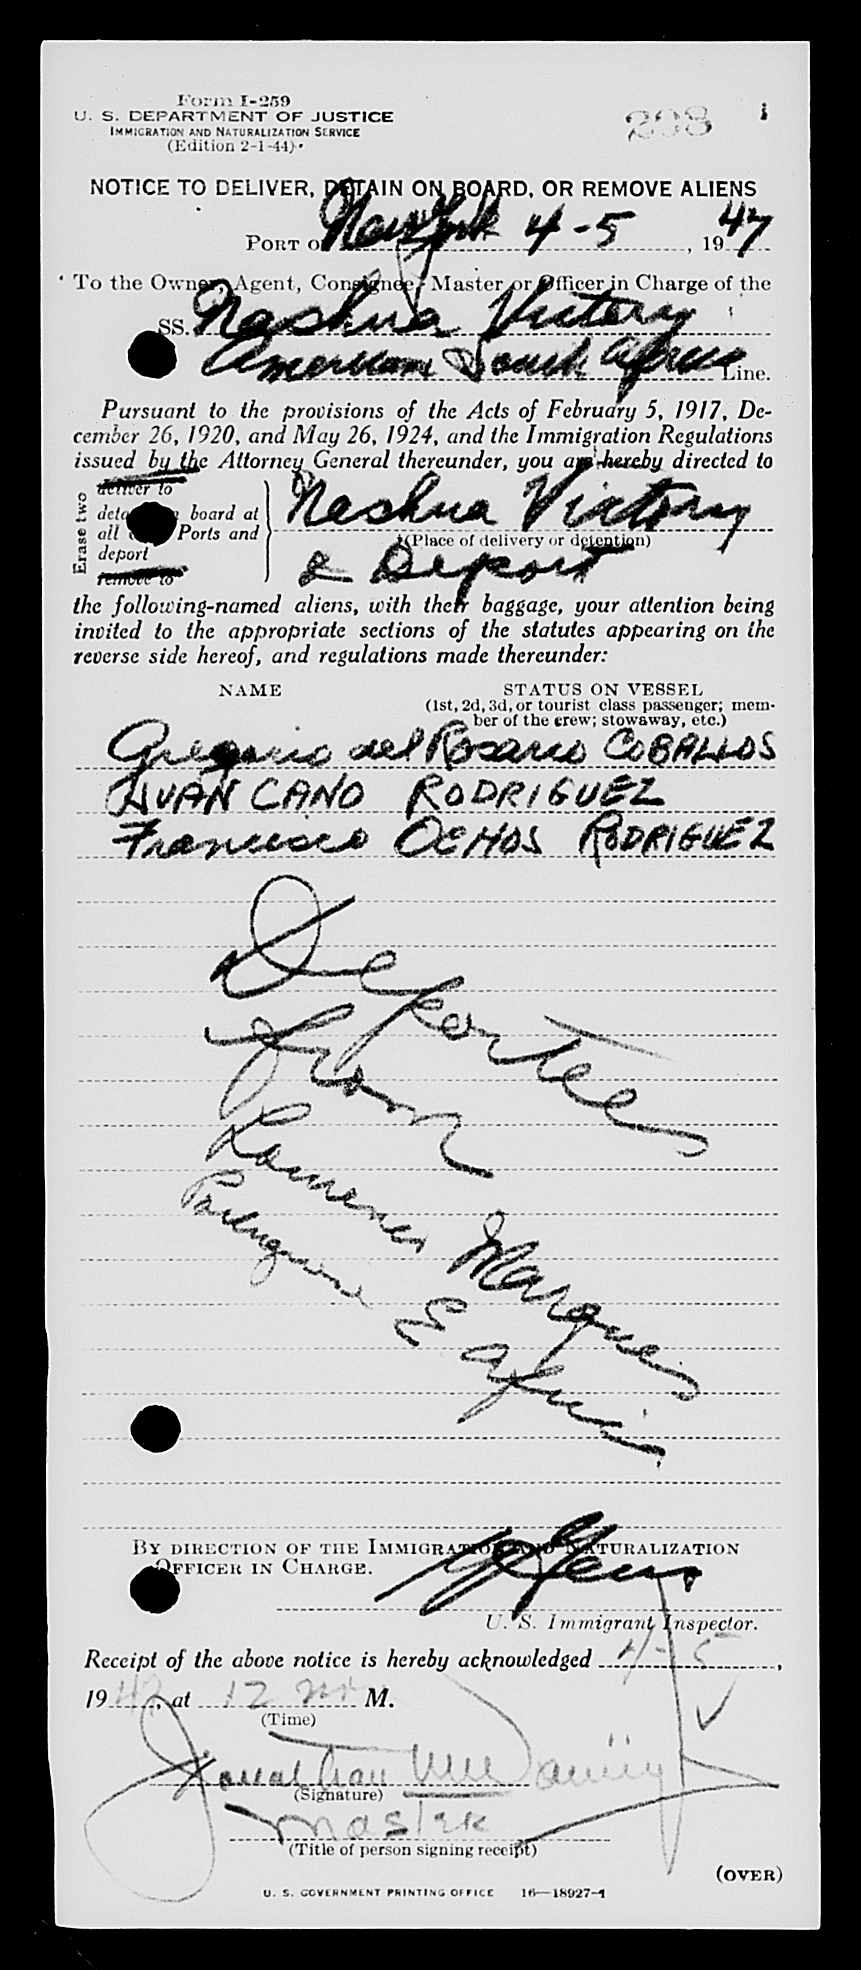 Form I-259
U. S. DEPARTMENT OF JUSTICE
IMMIGRATION AND NATURALIZATION SERVICE
(Edition 2-1-44)
298
NOTICE TO DELIVER, DETAIN ON BOARD, OR REMOVE ALIENS
PORT OF New York 4-5, 1947
To the Owner, Agent, Consignee, Master or Officer in Charge of the
SS. Nashua Victory
American South African Line.
Pursuant to the provisions of the Acts of February 5, 1917, De-
cember 26, 1920, and May 26, 1924, and the Immigration Regulations
issued by the Attorney General thereunder, you are hereby directed to
Erase two
deliver to
detain on board at
all Ports and
deport
remove to
Nashua Victory
(Place of delivery or detention)
& Deport
the following-named aliens, with their baggage, your attention being
invited to the appropriate sections of the statutes appearing on the
reverse side hereof, and regulations made thereunder:
NAME STATUS ON VESSEL
(1st, 2d, 3d, or tourist class passenger; mem-
ber of the crew; stowaway, etc.)
Gregorio del Rosario COBALLOS
JUAN CANO RODRIGUEZ
Francisco OCHOS RODRIGUEZ
Deportees
from
Lourenes Marques
Portuguese E Africa
BY DIRECTION OF THE IMMIGRATION AND NATURALIZATION
OFFICER IN CHARGE.
U. S. Immigrant Inspector.
Receipt of the above notice is hereby acknowledged 4-5,
1947, at 12 M.
(Time)
Jonathan
(Signature)
master
(Title of person signing receipt)
(OVER)
U. S. GOVERNMENT PRINTING OFFICE 16—18927-1